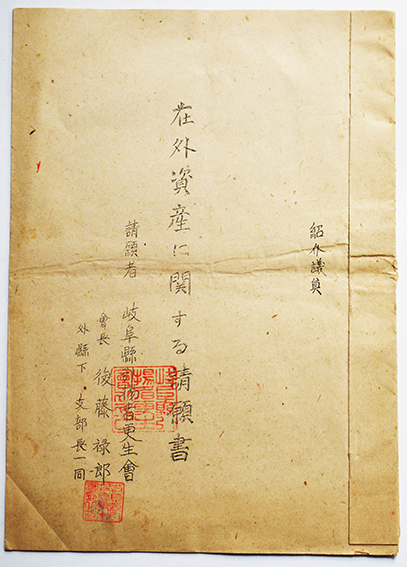 紹介議員
在外資産に関する請願書
請願者 岐阜縣引揚者更生會
會長 後藤禄郎
外縣下支部長一同